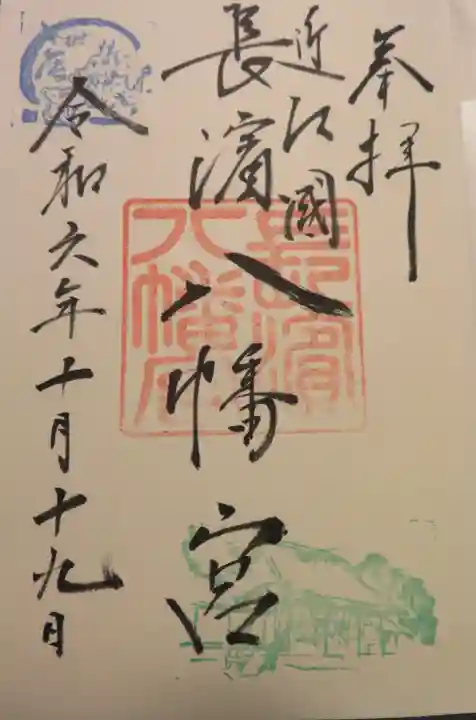 奉拝
近江國
長濱八幡宮
令和六年十月十九日
長濱
八幡宮